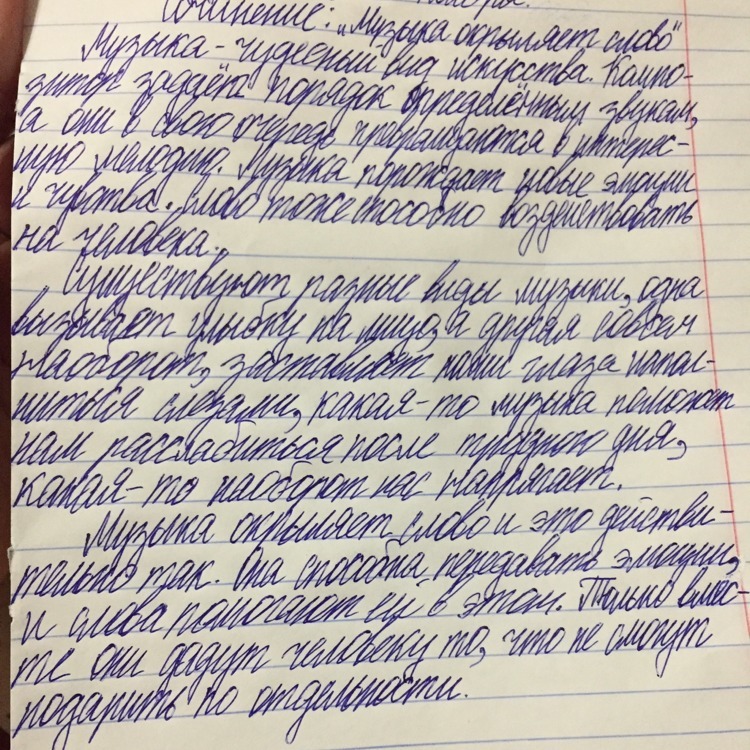 ноября.
Сочинение: „Музыка окрыляет слово"
Музыка - чудесный вид искусства. Компо-
зитор задаёт порядок определённым звукам,
а они в свою очередь превращаются в интерес-
ную мелодию. Музыка порождает новые эмоции
и чувства. Слово тоже способно воздействовать
на человека.
Существуют разные виды музыки, одна
вызывает улыбку на лице, а другая совсем
наоборот, заставляет наши глаза напол-
ниться слезами, какая-то музыка поможет
нам расслабиться после трудного дня,
какая-то наоборот нас напрягает.
Музыка окрыляет слово и это действи-
тельно так. Она способна передавать эмоции,
и слова помогают ей в этом. Только вмес-
те они дадут человеку то, что не смогут
подарить по отдельности.